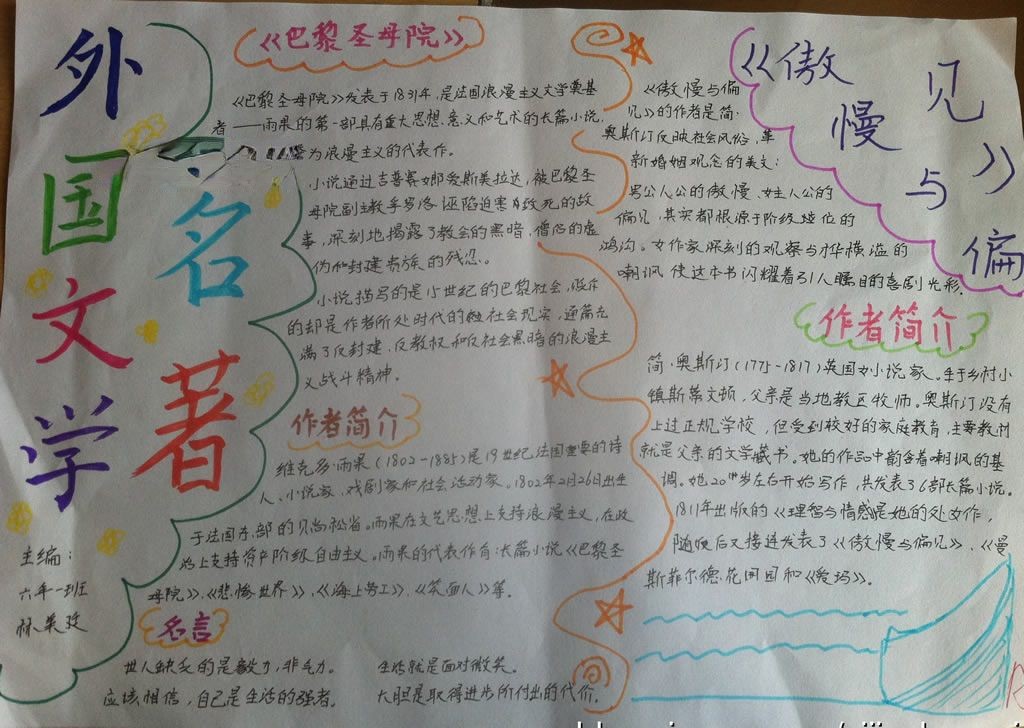 外国文学
名著
主编：
六年一班
《巴黎圣母院》
《巴黎圣母院》发表于1831年，是法国浪漫主义文学奠基
者——雨果的第一部具有重大思想意义和艺术的长篇小说，
为浪漫主义的代表作。
小说通过吉普赛女郎爱斯美拉达，被巴黎圣
母院副主教孚罗洛诬陷迫害致死的故
事，深刻地揭露了教会的黑暗，僧侣的虚
伪和封建贵族的残忍。
小说描写的是15世纪的巴黎社会，反
的却是作者所处时代的社会现实，通篇充
满了反封建、反教权和反社会黑暗的浪漫主
义战斗精神。
作者简介
维克多·雨果（1802-1885）是19世纪法国重要的诗
人、小说家、戏剧家和社会活动家。1802年2月26日出生
于法国东部的贝尚松省。雨果在文艺思想上支持浪漫主义，在政
治上支持资产阶级自由主义。雨果的代表作有：长篇小说《巴黎圣
母院》、《悲惨世界》、《海上劳工》、《笑面人》等。
名言
世人缺乏的是毅力，非气力。
应该相信，自己是生活的强者。
生活就是面对微笑。
大胆是取得进步所付出的代价。
《傲慢与偏见》
《傲慢与偏
见》的作者是简·
奥斯汀反映社会风俗，革
新婚姻观念的美文：
男公人公的傲慢、女主人公的
偏见，其实都根源于阶级地位的
鸿沟。女作家深刻的观察与才华横溢的
嘲讽使这本书闪耀着引人瞩目的喜剧光彩。
作者简介
简·奥斯汀（1775-1817）英国女小说家。生于乡村小
镇斯蒂文顿，父亲是当地教区牧师。奥斯汀没有
上过正规学校，但受到较好的家庭教育，主要教材
就是父亲的文学藏书。她的作品中韵含着嘲讽的基
调。她20岁左右开始写作，共发表了6部长篇小说。
1811年出版的《理智与情感》是她的处女作，
随后又接连发表了《傲慢与偏见》、《曼
斯菲尔德·花园园和《爱玛》。